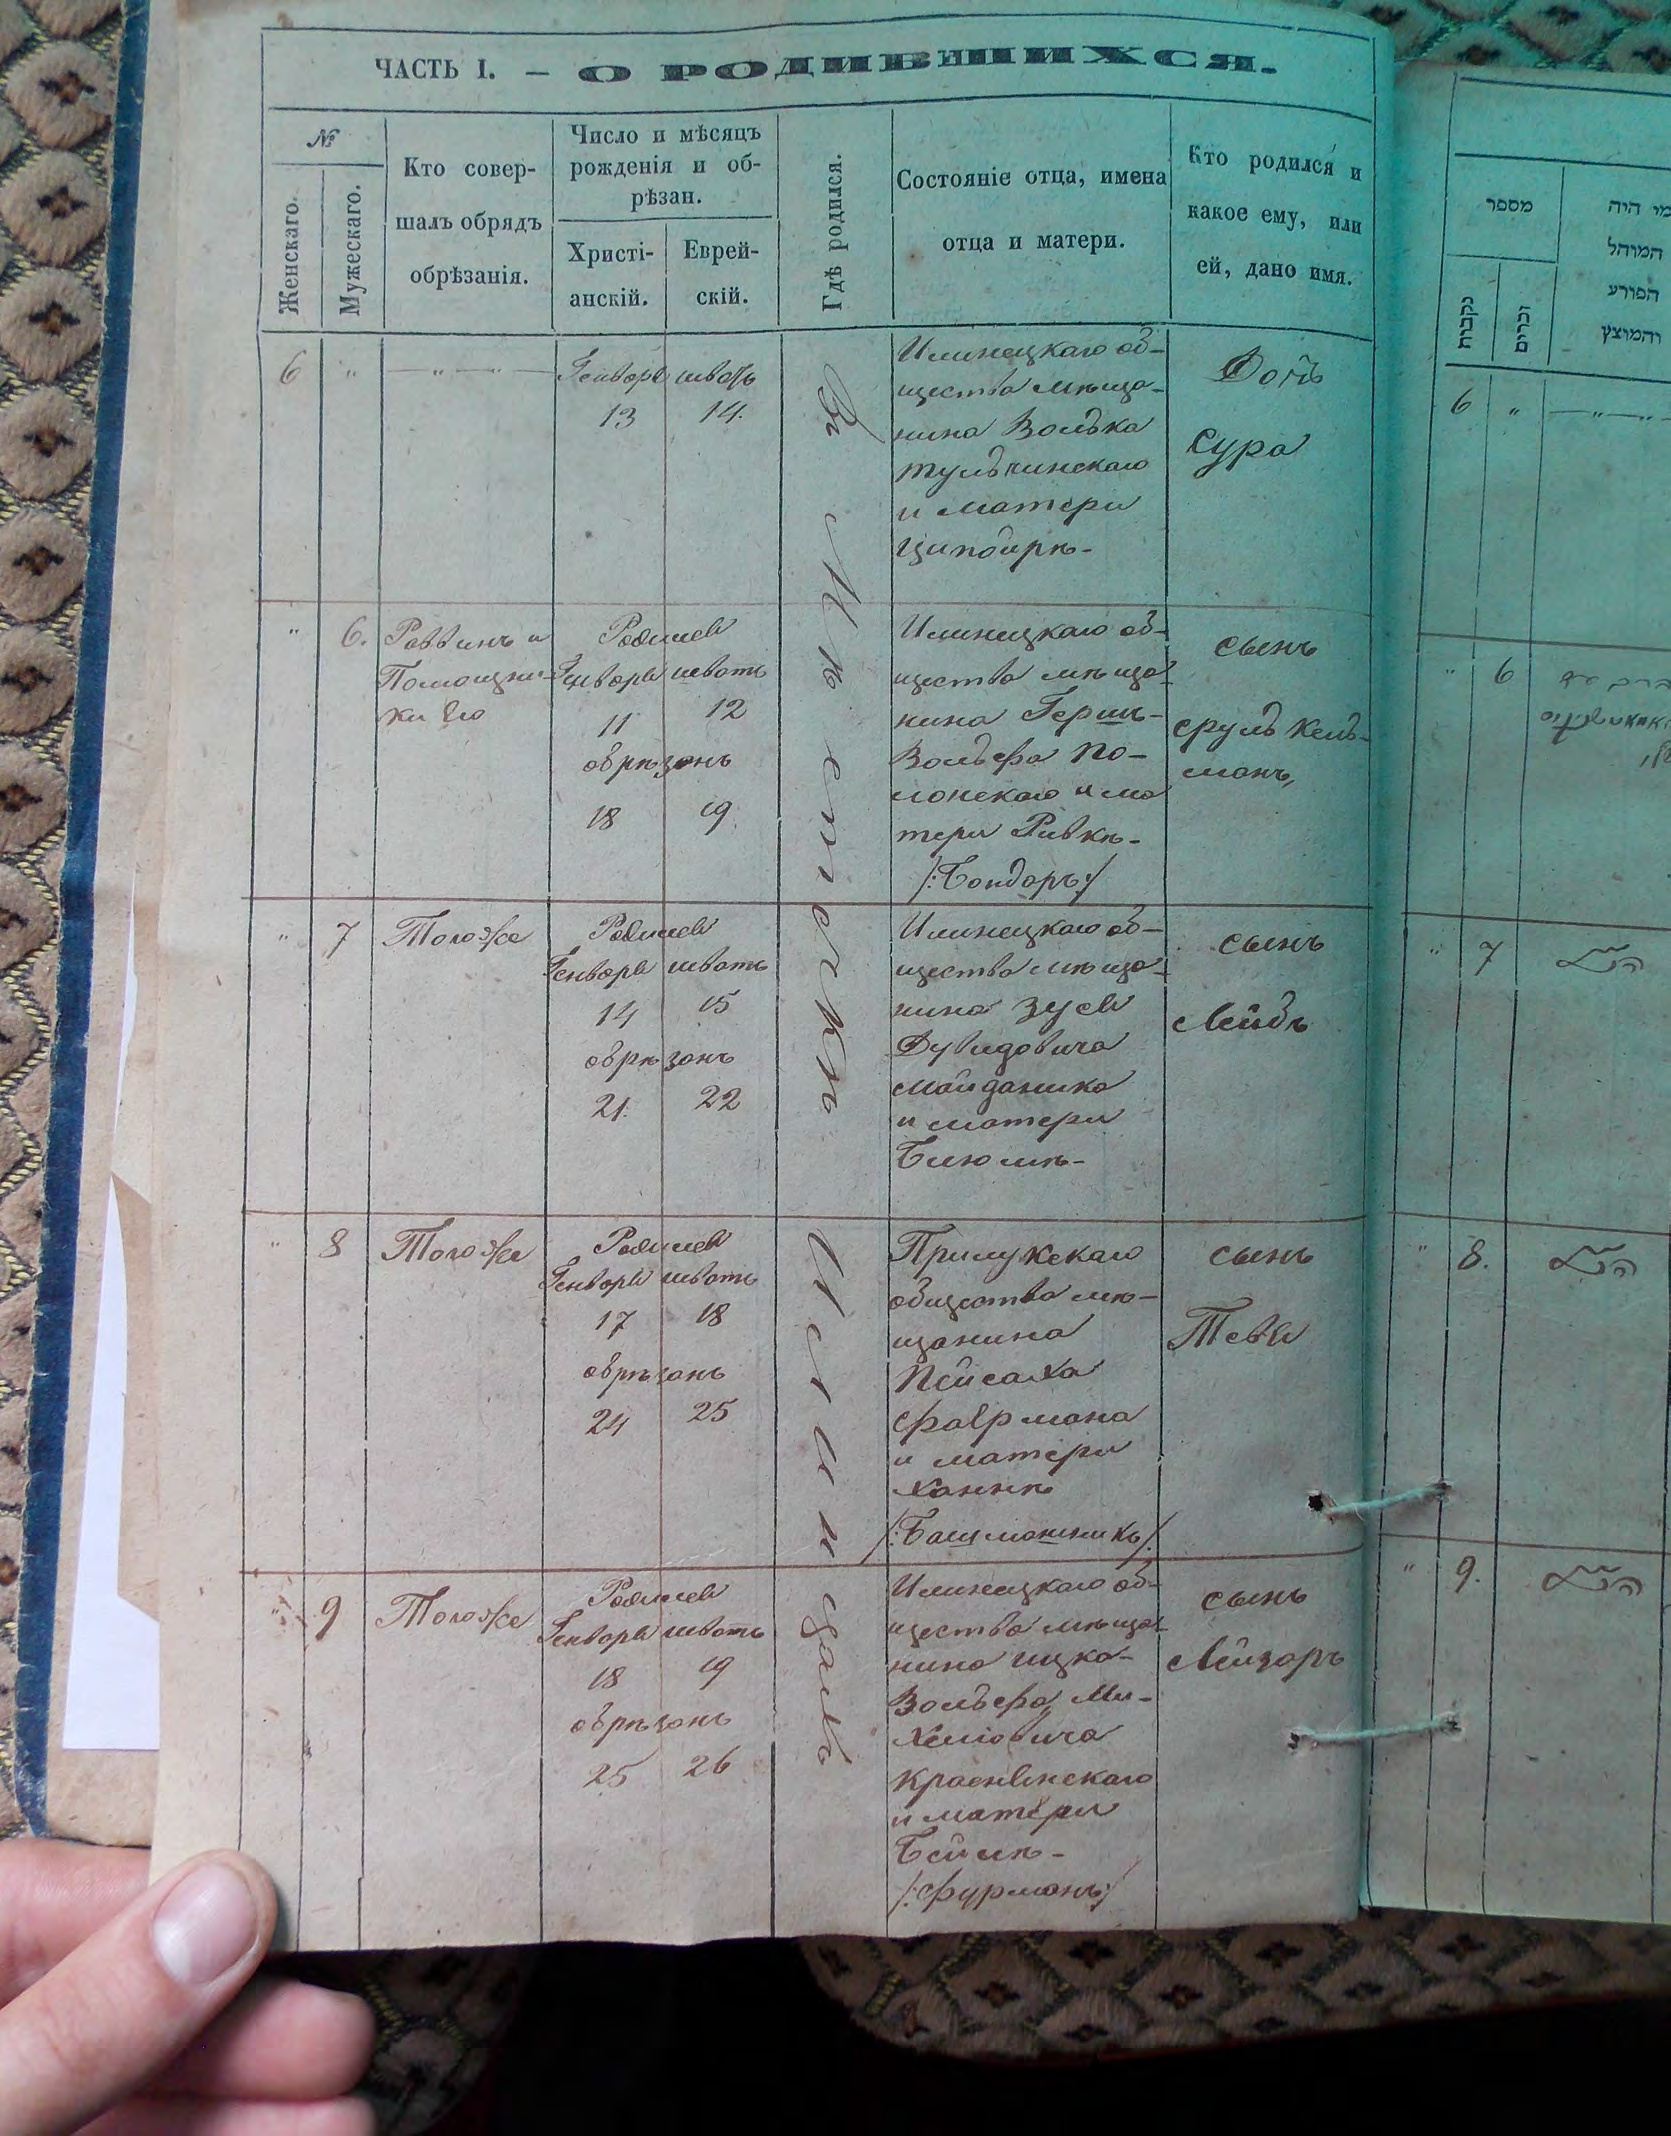 ЧАСТЬ I. — О РОДИВШИХСЯ.
№
Женскаго.
Мужескаго.
Кто совер-
шалъ обрядъ
обрѣзанія.
Число и мѣсяцъ
рожденія и об-
рѣзан.
Христі-
анскій.
Еврей-
скій.
Гдѣ родился.
Состояніе отца, имена
отца и матери.
Кто родился и
какое ему, или
ей, дано имя.
Въ Мѣстечкѣ Илинцахъ
6 " — " — " —
Генваря шватъ
13 14.
Илинецкаго об-
щества мѣща-
нина Волька
Тульчинскаго
и матери
Ципойрѣ-
Дочь
Сура
" 6. Раввинъ и
Помощни-
ки Его
Родился
Генваря шватъ
11 12
обрѣзанъ
18 19.
Илинецкаго об-
щества мѣща-
нина Гершъ-
Вольфа По-
лонскаго и ма
тери Ривкѣ-
/:Бондарь:/
сынъ
Сруль Кель-
манъ,
" 7 Тогоже
Родился
Генваря шватъ
14 15
обрѣзанъ
21. 22
Илинецкаго об-
щества мѣща-
нина Зуся
Дувидовича
Майданика
и матери
Блюмѣ-
сынъ
Лейбъ
" 8 Тогоже
Родился
Генваря шватъ
17 18
обрѣзанъ
24 25
Прилукскаго
общества мѣ-
щанина
Пейсаха
Фаермана
и матери
Ханнѣ
/:Башмашникъ/:
сынъ
Тевя
" 9 Тогоже
Родился
Генваря шватъ
18 19
обрѣзанъ
25 26
Илинецкаго об-
щества мѣща-
нина Ицка-
Вольфа Ми-
хелювича
Красненскаго
и матери
Бейлѣ-
/:Фурманъ:/
сынъ
Лейзоръ
מספר
נקבות
זכרים
מי היה
המוהל
הפורע
והמוצץ
6 " — " — " —
" 6
" 7 הנ״ל
" 8. הנ״ל
" 9. הנ״ל